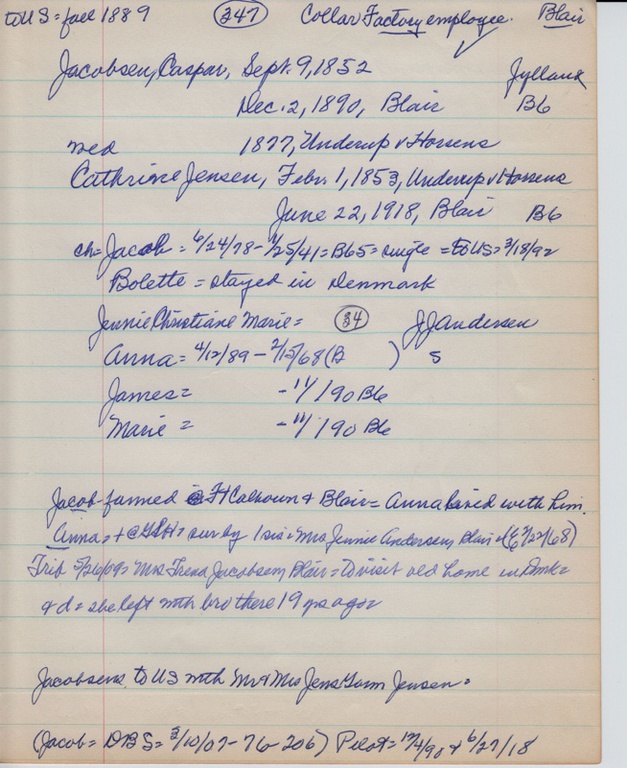 to US = fall 1889 347 Collar Factory employee. Blair
Jacobsen, Caspar, Sept. 9, 1852 Jylland
Dec. 2, 1890, Blair B6
med 1877, Underup v Horsens
Cathrine Jensen, Febr. 1, 1853, Underup v Horsens
June 22, 1918, Blair B6
ch = Jacob = 6/24/78 - /25/41 = B65 = single = to US = 3/18/92
Bolette = stayed in Denmark
Jennie Christiane Marie = 34 JJ Andersen
Anna = 4/12/89 - 2/15/68 (B ) S
James = - 11/190 B6
Marie = - 11/190 B6
Jacob farmed Ft Calhoun & Blair = Anna lived with him.
Anna = + @ = sur by 1 sis = Mrs Jennie Andersen, Blair = (E 2/22/68)
Trib 5/26/09 = Mrs Trena Jacobsen, Blair = to visit old home in Dmk =
+ d = she left with bro there 19 yrs ago =
Jacobsens to US with Mr & Mrs Jens Gorm Jensen =
(Jacob = DBS = 3/10/07 - 76 - 206) Pilot = 12/4/90 + 6/27/18